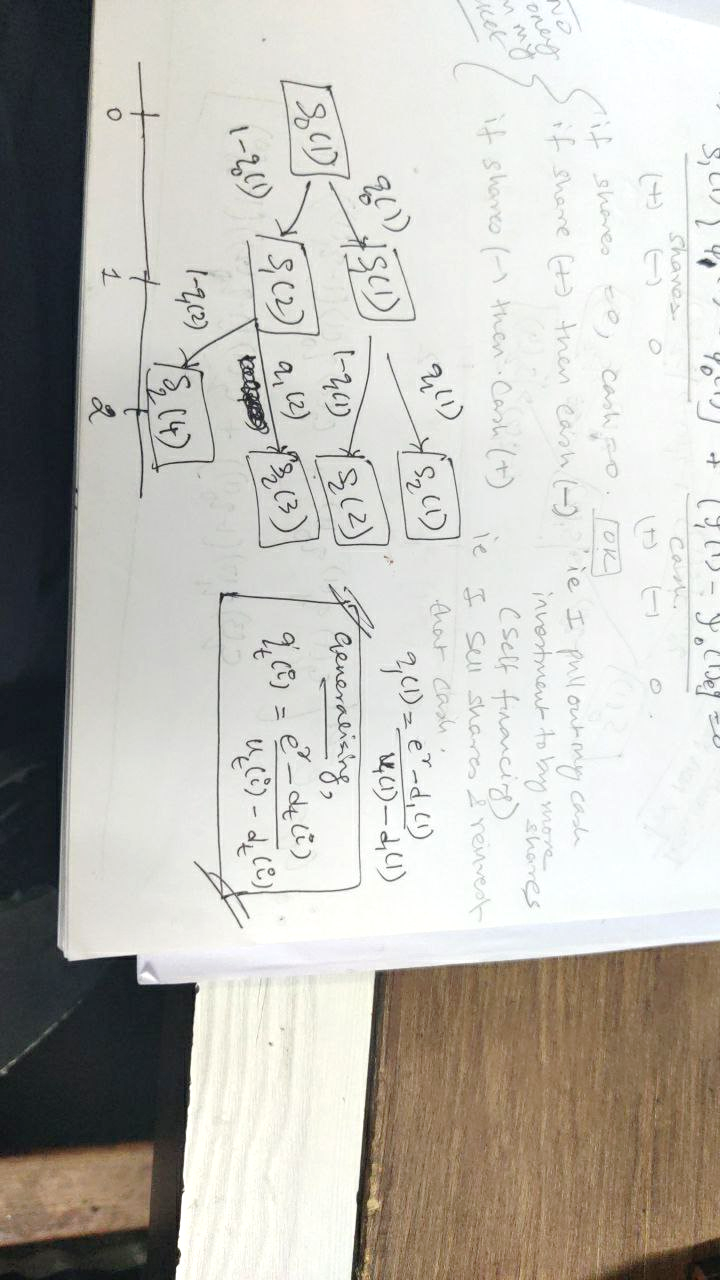 shares
cash
(+) (-) 0
(+) (-) 0.
if shares = 0, cash = 0. OK
if share (+) then cash (-) ie I pull out my cash
investment to by more
shares
(self financing)
if shares (-) then cash (+) ie I sell shares & reinvest
that cash.
NO
money
in my
S₀(1)
q₀(1)
1-q₀(1)
S₁(1)
S₁(2)
q₁(1)
1-q₁(1)
q₁(2)
1-q₁(2)
S₂(1)
S₂(2)
S₂(3)
S₂(4)
0 1 2
q₁(1) = (e^r - d₁(1)) / (u₁(1) - d₁(1))
generalising,
q_t(i) = (e^r - d_t(i)) / (u_t(i) - d_t(i))